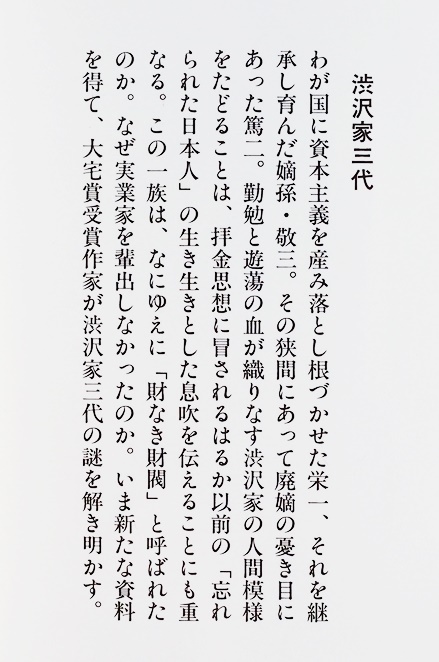 渋沢家三代
わが国に資本主義を産み落とし根づかせた栄一、それを継
承し育んだ嫡孫・敬三。その狭間にあって廃嫡の憂き目に
あった篤二。勤勉と遊蕩の血が織りなす渋沢家の人間模様
をたどることは、拝金思想に冒されるはるか以前の「忘れ
られた日本人」の生き生きとした息吹を伝えることにも重
なる。この一族は、なにゆえに「財なき財閥」と呼ばれた
のか。なぜ実業家を輩出しなかったのか。いま新たな資料
を得て、大宅賞受賞作家が渋沢家三代の謎を解き明かす。